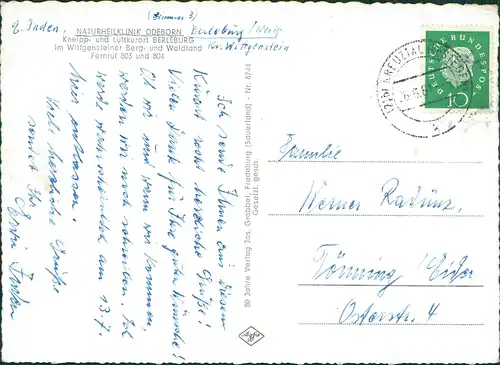 (Zimmer 3)
z. Z. Inden, Berleburg / Westf.
NATURHEILKLINIK ODEBORN
Kneipp- und Luftkurort BERLEBURG
Kr. Wittgenstein
Im Wittgensteiner Berg- und Waldland
Fernruf 803 und 804
Ich sende Ihnen aus diesem
Kurort recht herzliche Grüße!
Vielen Dank für Ihre guten Wünsche!
Ob wir und wann wir kommen,
werden wir noch schreiben. Ich
werde wahrscheinlich am 13.7.
hier entlassen.
Viele herzliche Grüße
sendet Ihr
80 Jahre Verlag Jos. Grobbel, Fredeburg (Sauerland) Nr. 8744
Gesetzl. gesch.
Agfa
KREUZTAL
DEUTSCHE BUNDESPOST
10
Familie
Werner Radünz,
Tönning / Eider
Osterstr. 4